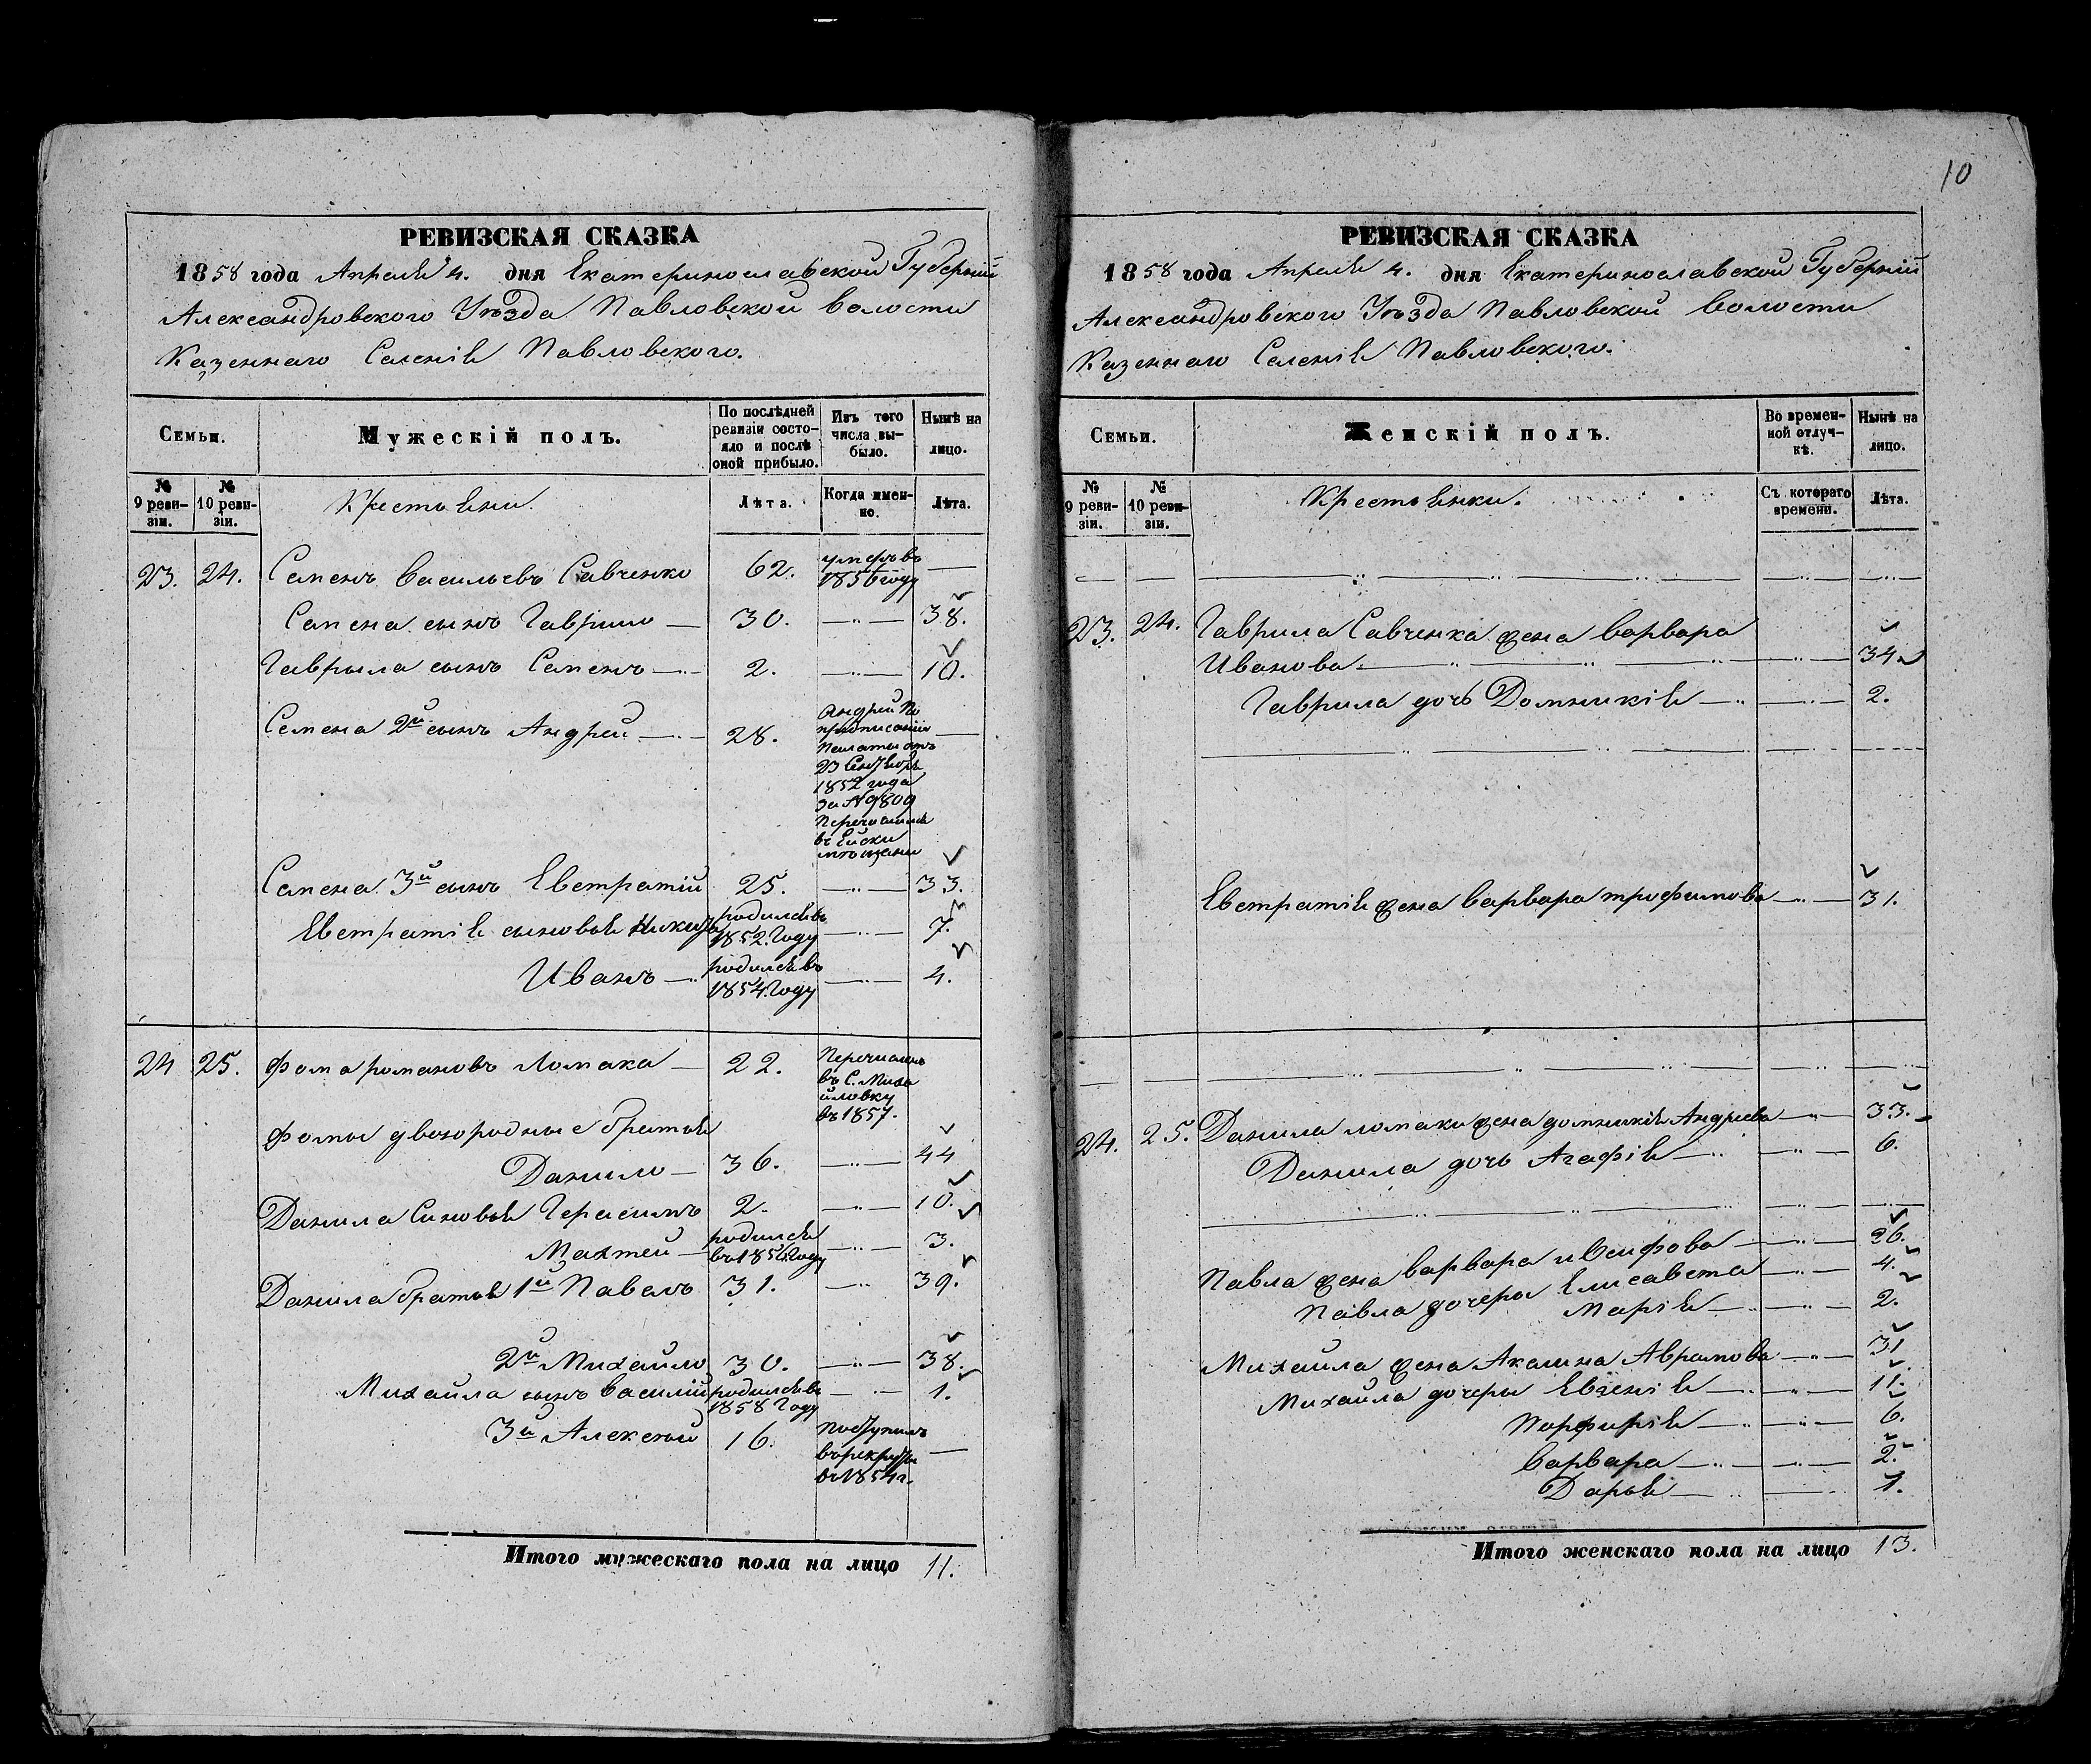 10
РЕВИЗСКАЯ СКАЗКА
1858 года Апреля 4. дня Екатеринославской Губерніи
Александровского Уѣзда Павловской волости
Казеннаго Селенія Павловского.
Семьи.
Мужескій полъ.
По послѣдней ревизіи состояло и послѣ оной прибыло.
Изъ того числа выбыло.
Нынѣ на лицо.
№ 9 ревизіи.
№ 10 ревизіи.
Крестьяни.
Лѣта.
Когда именно.
Лѣта.
23. 24. Семенъ Васильевъ Савченко 62. умеръ въ 1856 году —
Семена сынъ Гаврило — 30. —„— 38.
Гаврыла сынъ Семенъ —„— 2. —„— 10.
Семена 2й сынъ Андрей —„— 28. Андрей По предписанію Палаты отъ 23 Сентября 1852 года за № 9809 Перечислился въ Ейски мѣщани —
Семена 3й сынъ Евстратій 25. —„— 33.
Евстратія сыновья Никита родился въ 1852 Году —„— 7.
Иванъ —„ родился въ 1854 Году —„— 4.
24 25. Фома романовъ Ломака — 22. Перечислен въ С. Михайловку въ 1857.
Фомы двоюродные братья
Данило — 36. —„— 44
Данила Синовья Герасимъ 2. —„— 10.
Матей — родился въ 1856 Году —„— 3.
Данила братья 1й Павелъ 31. —„ 39.
2й Михайло 30. —„— 38.
Михайла сынъ Василій родился въ 1858 Году —„— 1.
3й Алексей 16. Поступилъ в рекруты в 1854 г. —
Итого мужескаго пола на лицо 11.
РЕВИЗСКАЯ СКАЗКА
1858 года Апреля 4. дня Екатеринославской Губерніи
Александровского Уѣзда Павловской волости
Казеннаго Селенія Павловского.
Семьи.
Женскій полъ.
Во временной отлучкѣ.
Нынѣ на лицо.
№ 9 ревизіи.
№ 10 ревизіи.
Крестьянки.
Съ котораго времени.
Лѣта.
23. 24. Гаврила Савченка жена варвара
Иванова —„— 34
Гаврила дочь Домникія —„— 2.
Евстратія жена варвара трофимова —„— 31.
24. 25. Данила ломаки жена домникія Андреева —„— 33.
Данила дочь Агафія —„— 6.
Павла жена варвара иосифова —„— 36.
Павла дочеры Елисавета —„— 4.
Марія —„— 2.
Михайла жена Акалина Аврамова —„— 31
Михайла дочеры Евгенія —„— 11.
Порфирія —„— 6.
Варвара —„— 2.
Дарья —„— 1.
Итого женскаго пола на лицо 13.